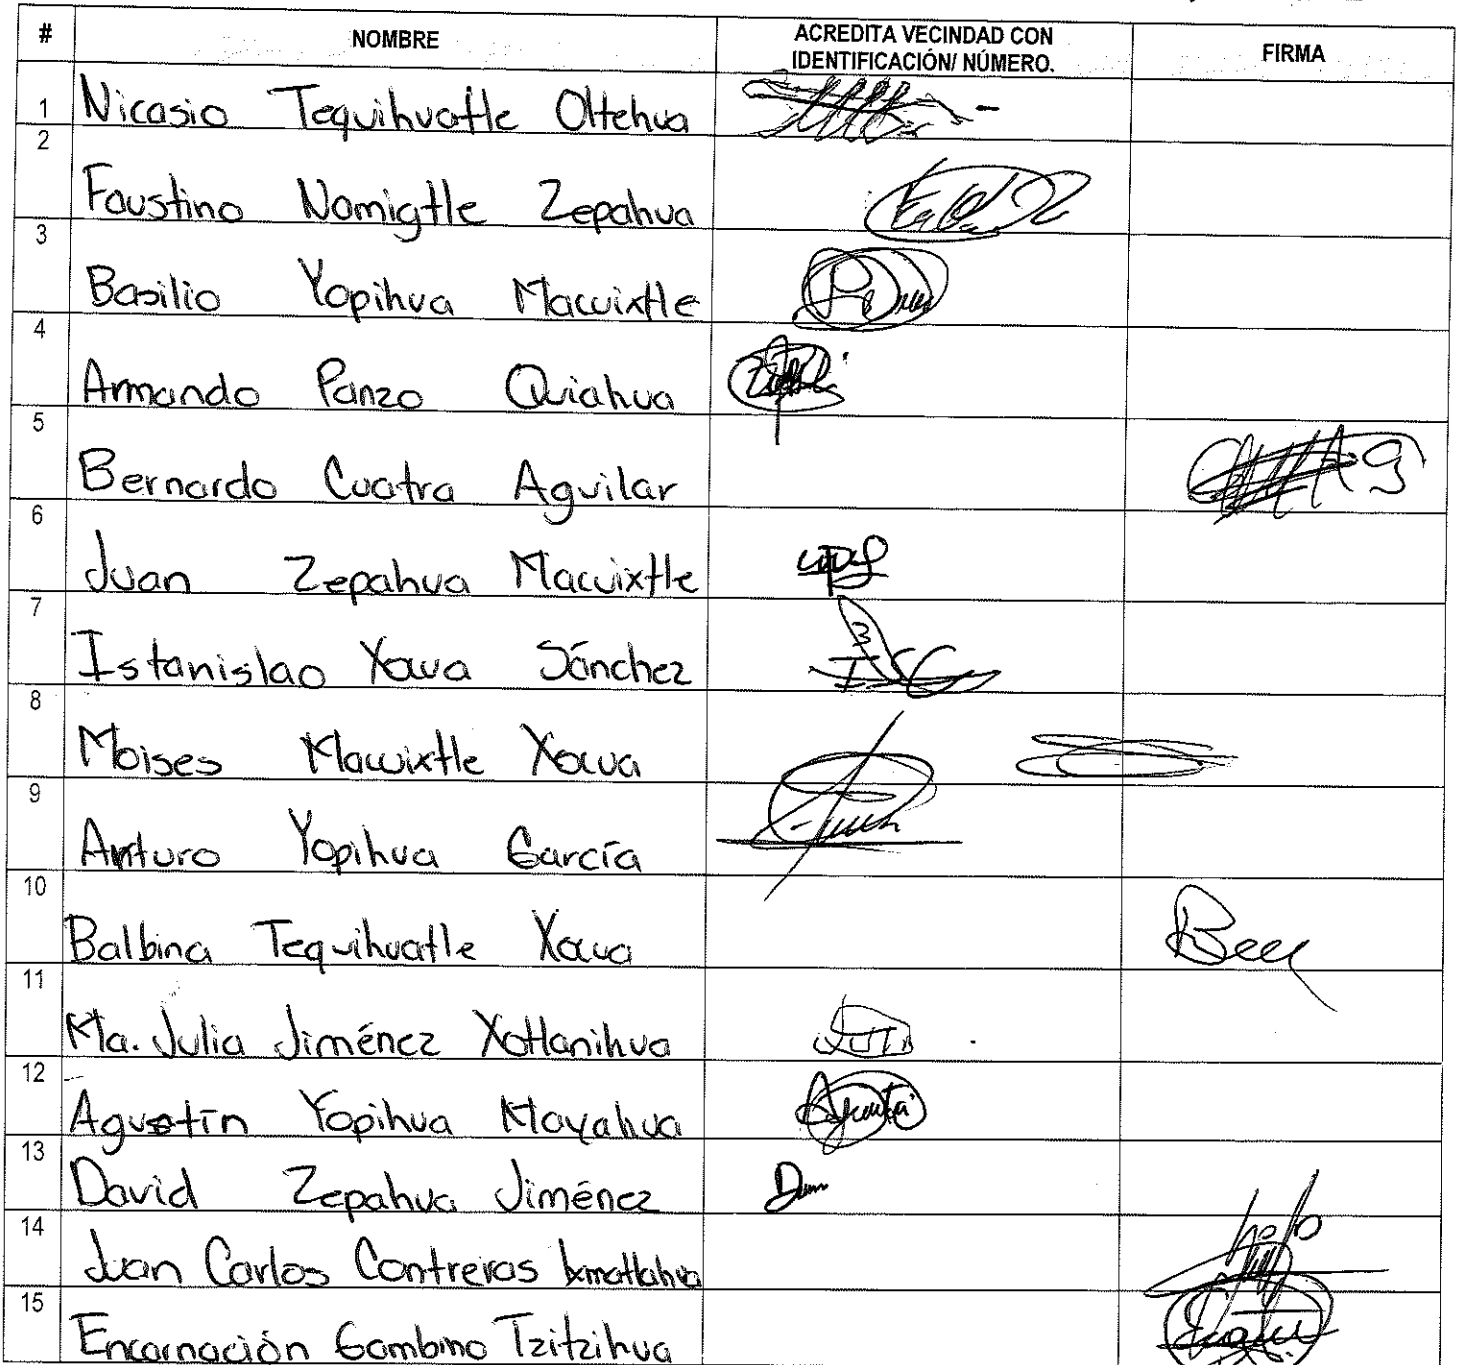 # NOMBRE ACREDITA VECINDAD CON IDENTIFICACIÓN/ NÚMERO. FIRMA
1 Nicasio Tequihuatle Oltehua
2 Faustino Nomigtle Zepahua
3 Basilio Yopihua Macuixtle
4 Armando Panzo Quiahua
5 Bernardo Cuatra Aguilar
6 Juan Zepahua Macuixtle
7 Istanislao Xocua Sánchez
8 Moises Macuixtle Xocua
9 Arturo Yopihua García
10 Balbina Tequihuatle Xocua
11 Ma. Julia Jiménez Xotlanihua
12 Agustín Yopihua Mayahua
13 David Zepahua Jiménez
14 Juan Carlos Contreras Ixmatlahua
15 Encarnación Gambino Tzitzihua